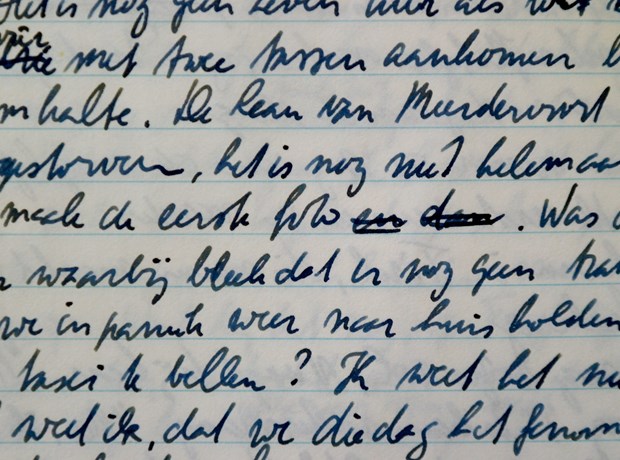 Het is nog geen zeven uur als we
wir
met twee tassen aankomen b
mhalte. De Laan van Meerdervoort
gestorven, het is nog niet helemaa
maak de eerste foto en dan. Was d
waarbij bleek dat er nog geen tra
we in paniek weer naar huis holden
taxi te bellen? Ik weet het ni
weet ik, dat we die dag het fenom